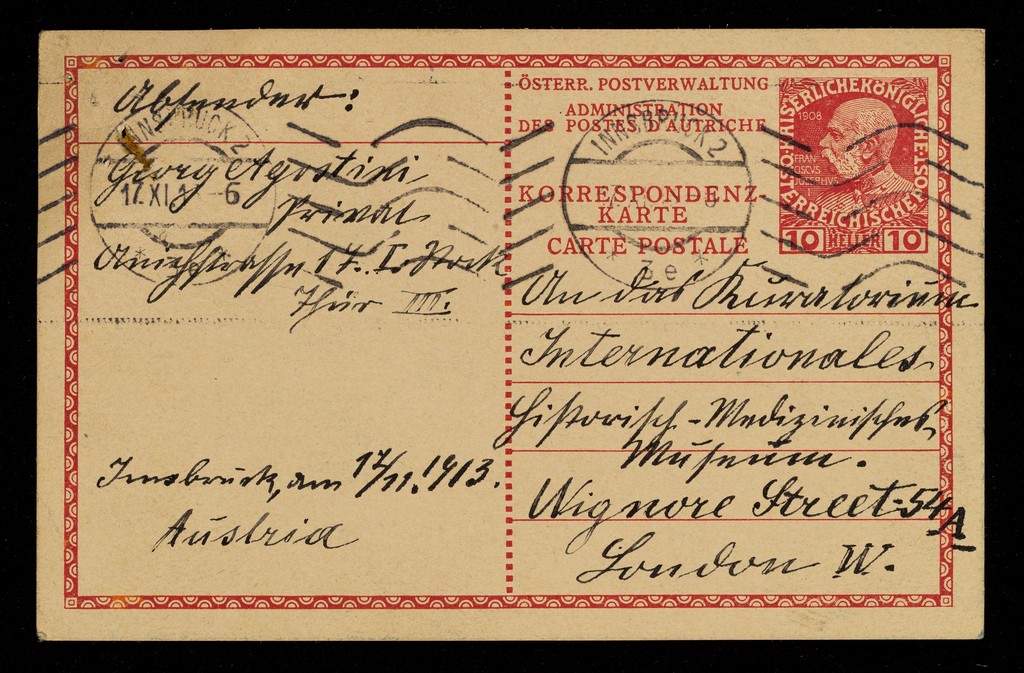 Absender:
Georg Agostini
Privat
17. I. Stock
Thür III.
Innsbruck, am 17/11. 1913.
Austria
INNSBRUCK 2
17. XI. 6
ÖSTERR. POSTVERWALTUNG
ADMINISTRATION
DES POSTES D'AUTRICHE
KORRESPONDENZ-
KARTE
CARTE POSTALE
INNSBRUCK 2
* 3e *
KAISERLICHEKÖNIGLICHE
ÖSTERREICHISCHE
1908
FRAN
CISCVS
IOSEPHVS
10 HELLER 10
An das Kuratorium
Internationales
Historisch-Medizinisches
Museum.
Wignore Street-54
A
London W.